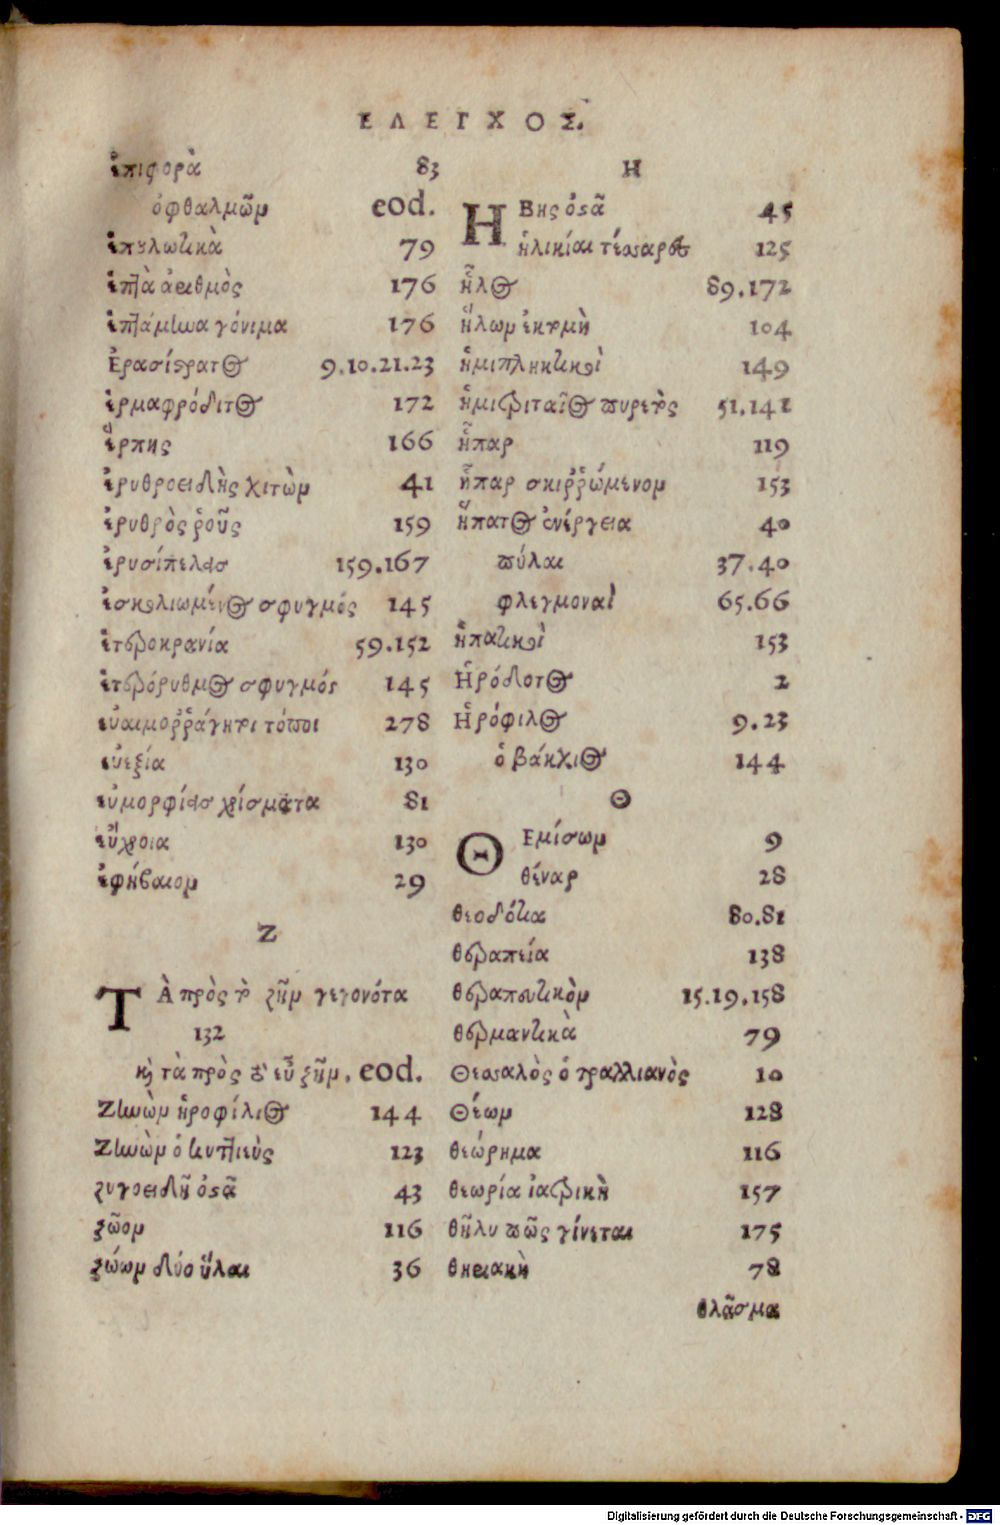 ΕΛΕΓΧΟΣ.
ἐπιφορὰ 83
ὀφθαλμῶν eod.
ἐπουλωτικὰ 79
ἑπτὰ ἀριθμὸς 176
ἑπτάμηνα γόνιμα 176
Ἐρασίστρατος 9.10.21.23
ἑρμαφρόδιτος 172
ἕρπης 166
ἐρυθροειδὴς χιτὼν 41
ἐρυθρὸς ῥοῦς 159
ἐρυσίπελας 159.167
ἐσκολιωμένος σφυγμός 145
ἑτεροκρανία 59.152
ἑτερόρυθμος σφυγμός 145
εὐαιμοῤῥάγητοι τόποι 278
εὐεξία 130
εὐμορφίας χρίσματα 81
εὔχροια 130
ἐφήβαιον 29
Ζ
ΤᾺ πρὸς τὸ ζῆν γεγονότα
132
καὶ τὰ πρὸς τὸ εὖ ζῆν. eod.
Ζηνὼν ἡροφίλιος 144
Ζηνὼν ὁ κυτιεὺς 123
ζυγοειδῆ ὀστᾶ 43
ζῶον 116
ζώων δύο ὕλαι 36
Η
ἭΒης ὀστᾶ 45
ἡλικίαι τέσσαρες 125
ἧλος 89.172
ἥλων ἐκτομὴ 104
ἡμιπληκτικοὶ 149
ἡμιτριταῖος πυρετός 51.141
ἧπαρ 119
ἧπαρ σκιῤῥώμενον 153
ἥπατος ἐνέργεια 40
πύλαι 37.40
φλεγμοναὶ 65.66
ἡπατικοὶ 153
Ἡρόδοτος 2
Ἡρόφιλος 9.23
ὁ βάκχιος 144
Θ
ΘΕμίσων 9
θέναρ 28
θεοδότια 80.81
θεραπεία 138
θεραπευτικὸν 15.19.158
θερμαντικὰ 79
Θεσσαλὸς ὁ τραλλιανὸς 10
Θέων 128
θεώρημα 116
θεωρία ἰατρικὴ 157
θῆλυ πῶς γίνεται 175
θηριακὴ 78
θλᾶσμα
Digitalisierung gefördert durch die Deutsche Forschungsgemeinschaft - DFG